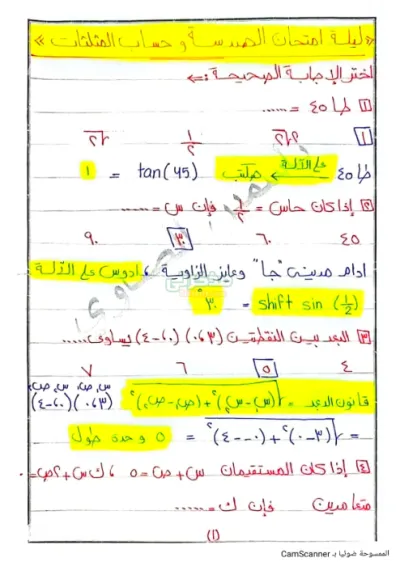 «ليلة امتحان الهندسة وحساب المثلثات»
اختر الإجابة الصحيحة:
١ طا ٤٥ = ......
١ ١/٢
طا ٤٥ على الآلة نكتب tan(45) = ١
٢ إذا كان حاس = ١/٢ فإن س = ......
٤٥ ٦٠ ٣٠ ٩٠
ادام مديني "جا" وعايز الزاوية، ادوس على الآلة
shift sin (١/٢) = ٣٠°
٣ البعد بين النقطتين (٣،٠) (٠،-٤) يساوى ......
٤ ٥ ٦ ٧
س١ ص١ س٢ ص٢
قانون البعد = √(س١-س٢)²+(ص١-ص٢)² (٣،٠) (٠،-٤)
= √(٣-٠)²+(٠--٤)² = ٥ وحدة طول
٤ إذا كان المستقيمان س+ص=٥ ، ك س+٢ص=٠
متعامدين فإن ك = ......
(١)
الممسوحة ضوئيا بـ CamScanner